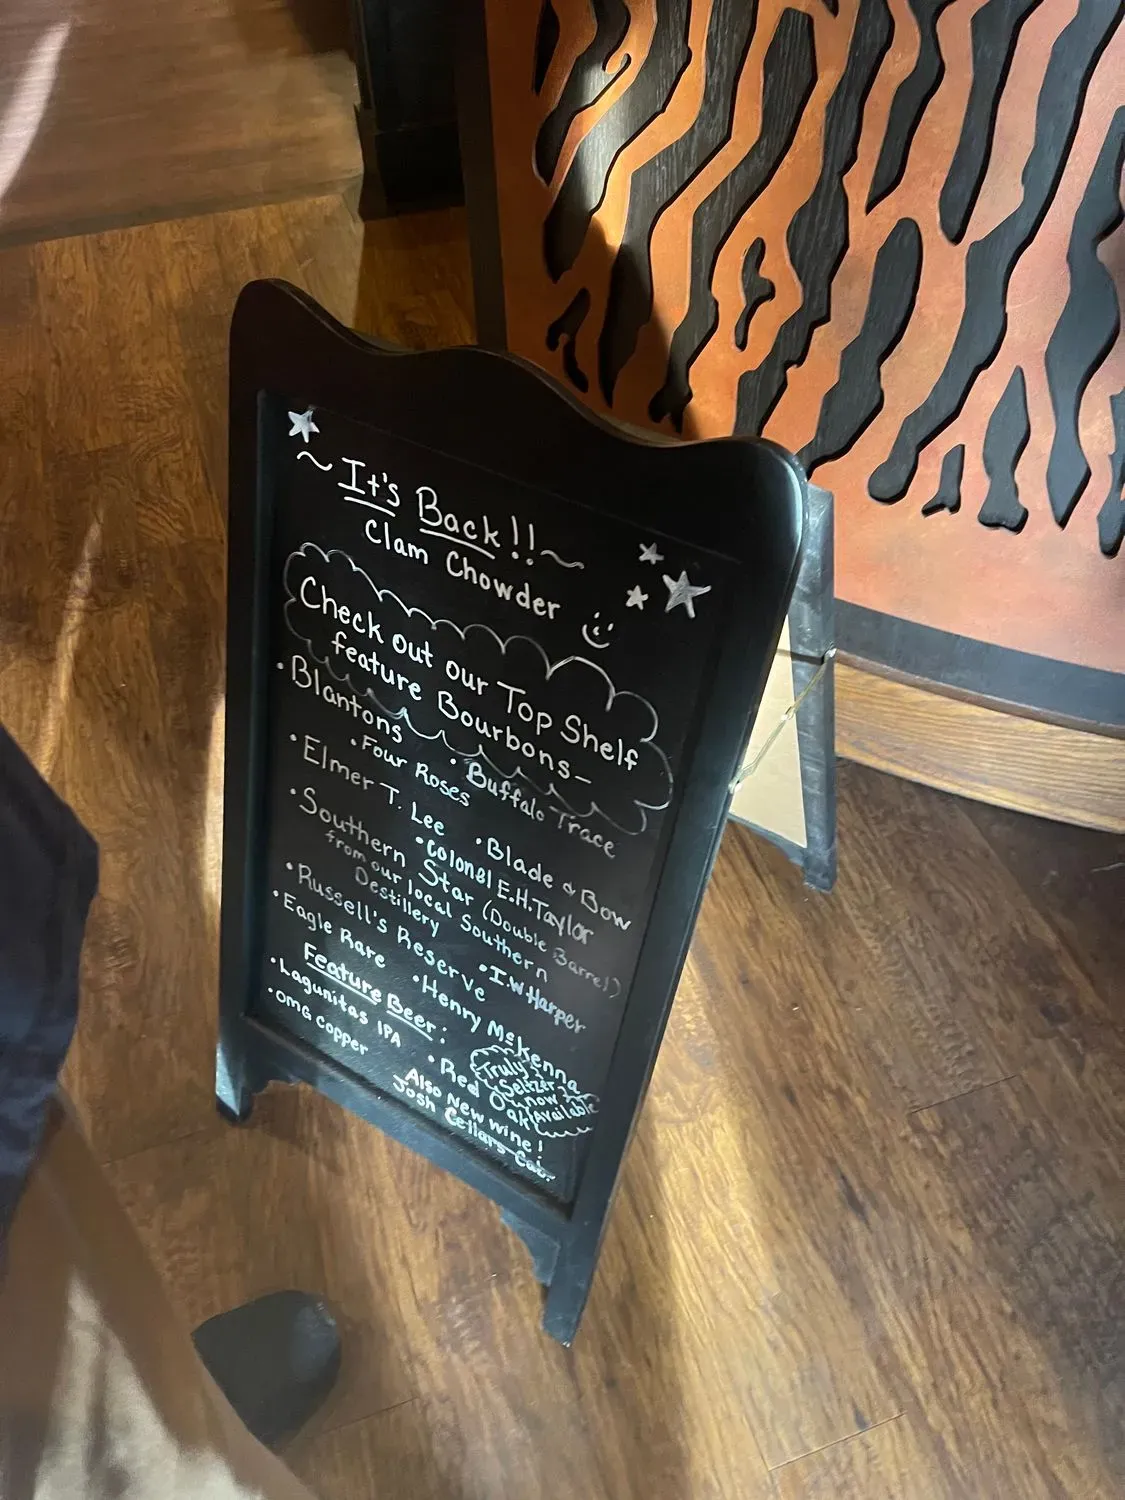 ~ It's Back!! ~
Clam Chowder
Check out our Top Shelf
feature Bourbons-
• Blantons
• Four Roses
• Buffalo Trace
• Elmer T. Lee
• Blade & Bow
• Colonel E.H. Taylor
• Southern Star (Double Barrel)
from our local Southern
Destillery
• Russell's Reserve
• I.W Harper
• Eagle Rare
• Henry McKenna
Feature Beer:
• Lagunitas IPA
• Red Oak
• OMG Copper
Truly
Seltzer
now
Available
Also New wine!
Josh Cellars Cab.